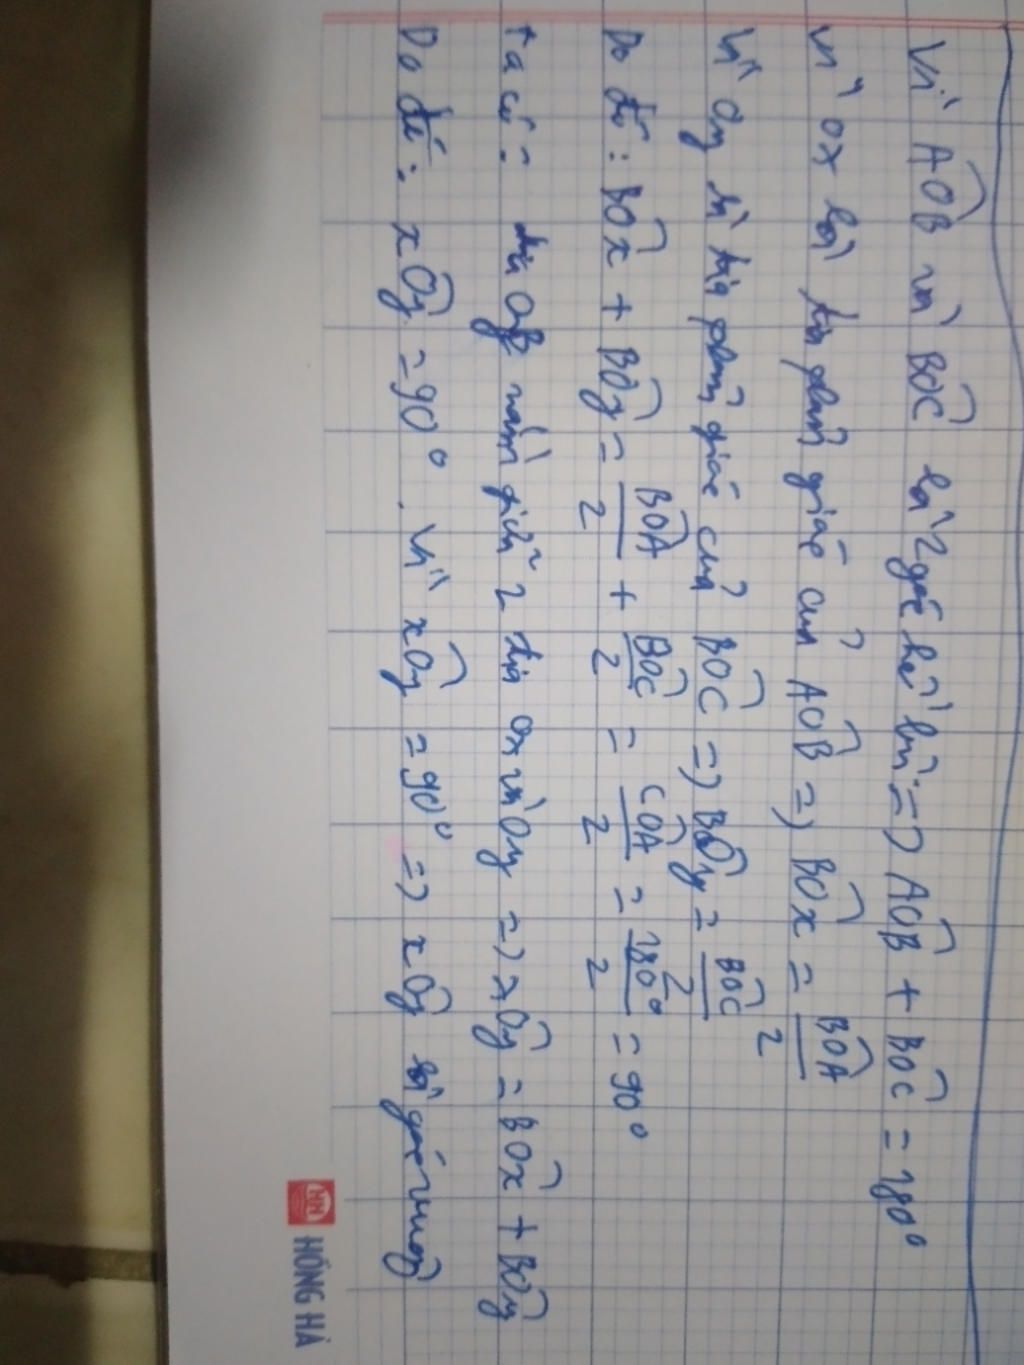 Vì AÔB và BÔC là 2 góc kề bù => AÔB + BÔC = 180°
Vì Ox là tia phân giác của AÔB => BÔx = BÔA/2
Vì Oy là tia phân giác của BÔC => BÔy = BÔC/2
Do đó: BÔx + BÔy = BÔA/2 + BÔC/2 = CÔA/2 = 180°/2 = 90°
Ta có: tia OB nằm giữa 2 tia Ox và Oy => xÔy = BÔx + BÔy
Do đó: xÔy = 90°. Vì xÔy = 90° => xÔy là góc vuông
HỒNG HÀ